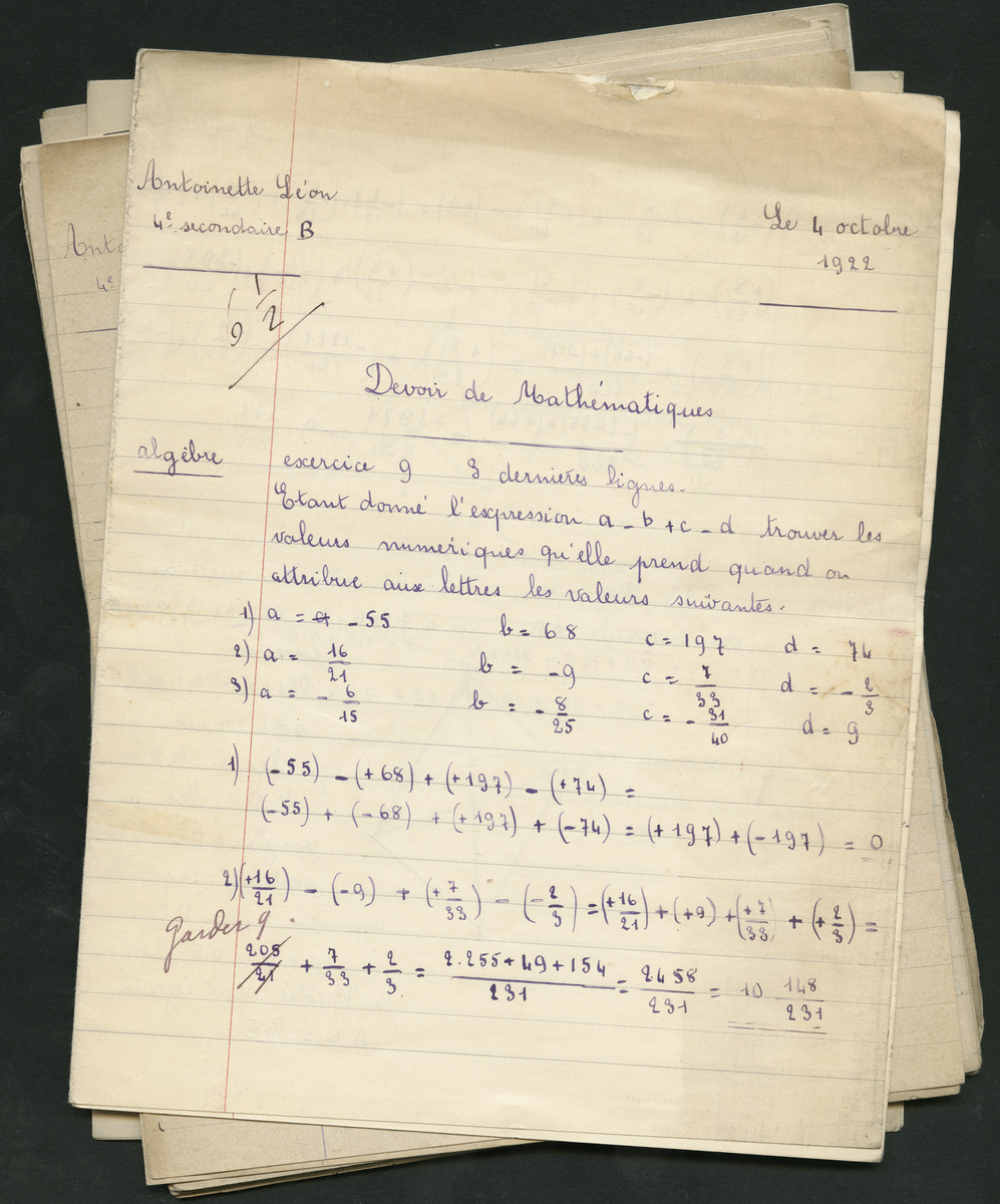 Antoinette Léon
4e secondaire B
Le 4 octobre
1922
9 1/2
Devoir de Mathématiques
algèbre exercice 9 3 dernières lignes.
Etant donné l'expression a - b + c - d trouver les
valeurs numériques qu'elle prend quand on
attribue aux lettres les valeurs suivantes.
1) a = - 55 b = 68 c = 197 d = 74
2) a = 16/21 b = -9 c = 7/33 d = - 2/3
3) a = - 6/15 b = - 8/25 c = - 31/40 d = 9
1) (-55) - (+68) + (+197) - (+74) =
(-55) + (-68) + (+197) + (-74) = (+197) + (-197) = 0
2) (+16/21) - (-9) + (+7/33) - (-2/3) = (+16/21) + (+9) + (+7/33) + (+2/3) =
Garder 9.
205/21 + 7/33 + 2/3 = 2.255+49+154/231 = 2458/231 = 10 148/231
Ante
4e